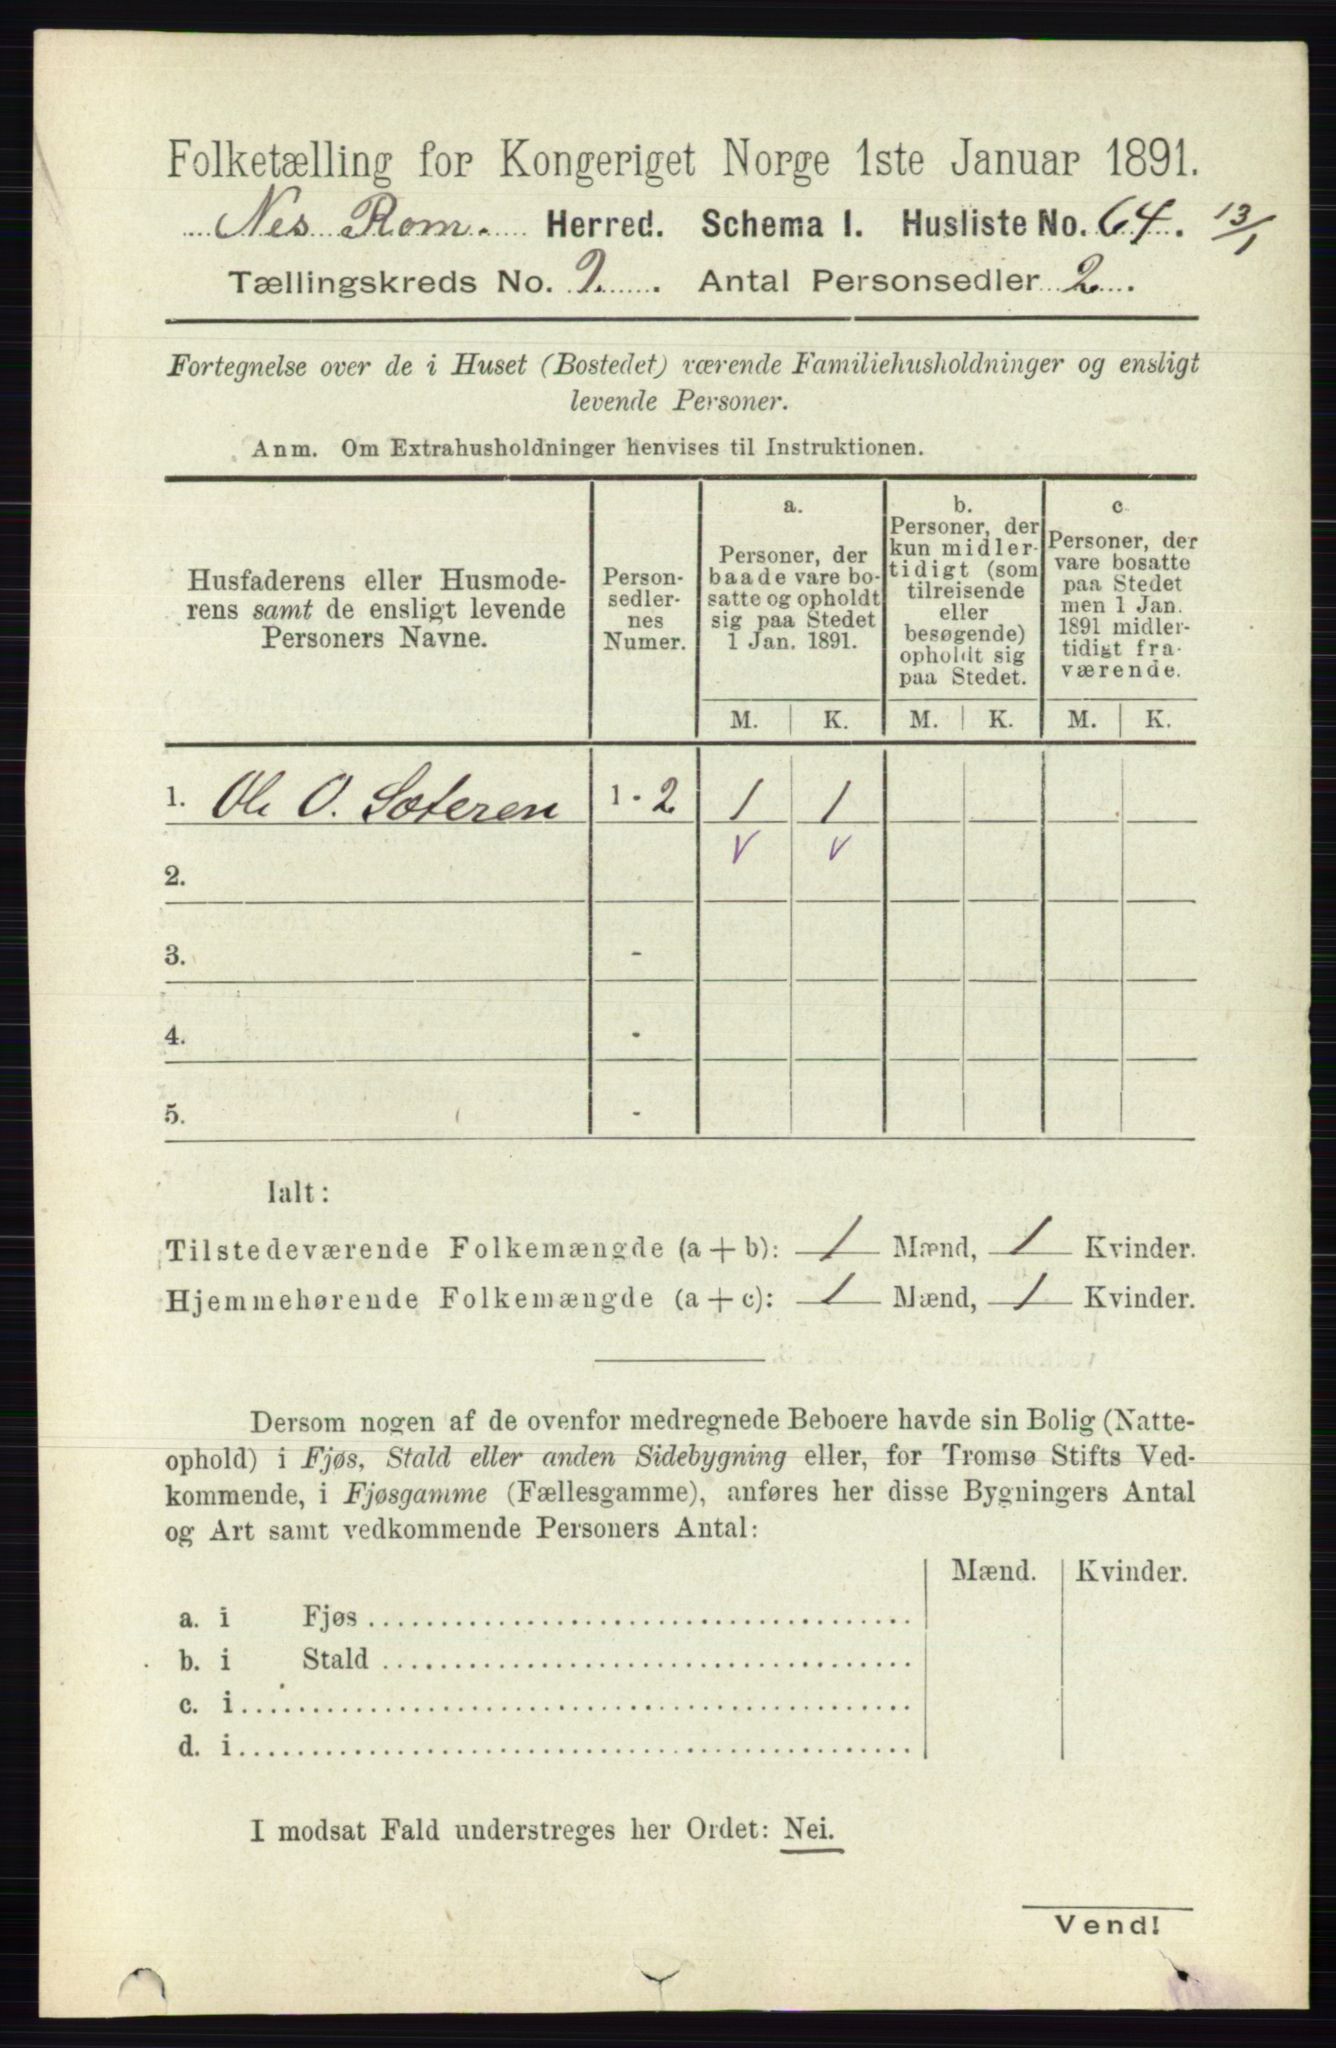 Folketælling for Kongeriget Norge 1ste Januar 1891.
Nes Rom. Herred. Schema I. Husliste No. 64. 13/1
Tællingskreds No. 2. Antal Personsedler 2.
Fortegnelse over de i Huset (Bostedet) værende Familiehusholdninger og ensligt
levende Personer.
Anm. Om Extrahusholdninger henvises til Instruktionen.
Husfaderens eller Husmode-
rens samt de ensligt levende
Personers Navne.
Person-
sedler-
nes
Numer.
a.
Personer, der
baade vare bo-
satte og opholdt
sig paa Stedet
1 Jan. 1891.
b.
Personer, der
kun midler-
tidigt (som
tilreisende
eller
besøgende)
opholdt sig
paa Stedet.
c
Personer, der
vare bosatte
paa Stedet
men 1 Jan.
1891 midler-
tidigt fra-
værende.
M. K. M. K. M. K.
1. Ole O. Sæteren 1 - 2 1 1
2.
3. -
4. -
5. -
Ialt:
Tilstedeværende Folkemængde (a + b): 1 Mænd, 1 Kvinder.
Hjemmehørende Folkemængde (a + c): 1 Mænd, 1 Kvinder.
Dersom nogen af de ovenfor medregnede Beboere havde sin Bolig (Natte-
ophold) i Fjøs, Stald eller anden Sidebygning eller, for Tromsø Stifts Ved-
kommende, i Fjøsgamme (Fællesgamme), anføres her disse Bygningers Antal
og Art samt vedkommende Personers Antal:
Mænd. Kvinder.
a. i Fjøs
b. i Stald
c. i
d. i
I modsat Fald understreges her Ordet: Nei.
Vend!